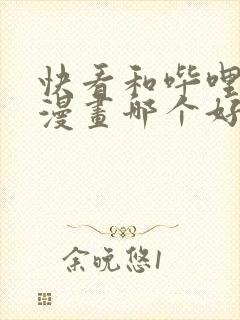 快看和哔哩
漫畫哪个好
余晚悠1